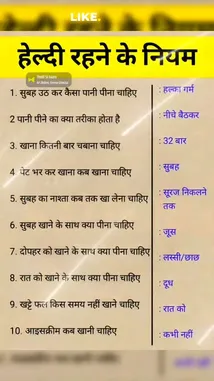 LIKE.
हेल्दी रहने के नियम
1. सुबह उठ कर कैसा पानी पीना चाहिए : हल्का गर्म
2 पानी पीने का क्या तरीका होता है : नीचे बैठकर
3. खाना कितनी बार चबाना चाहिए : 32 बार
4 पेट भर कर खाना कब खाना चाहिए : सुबह
5. सुबह का नाश्ता कब तक खा लेना चाहिए : सूरज निकलने
तक
6. सुबह खाने के साथ क्या पीना चाहिए : जूस
7. दोपहर को खाने के साथ क्या पीना चाहिए : लस्सी/छाछ
8. रात को खाने के साथ क्या पीना चाहिए : दूध
9. खट्टे फल किस समय नहीं खाने चाहिए : रात को
10. आइसक्रीम कब खानी चाहिए : कभी नहीं